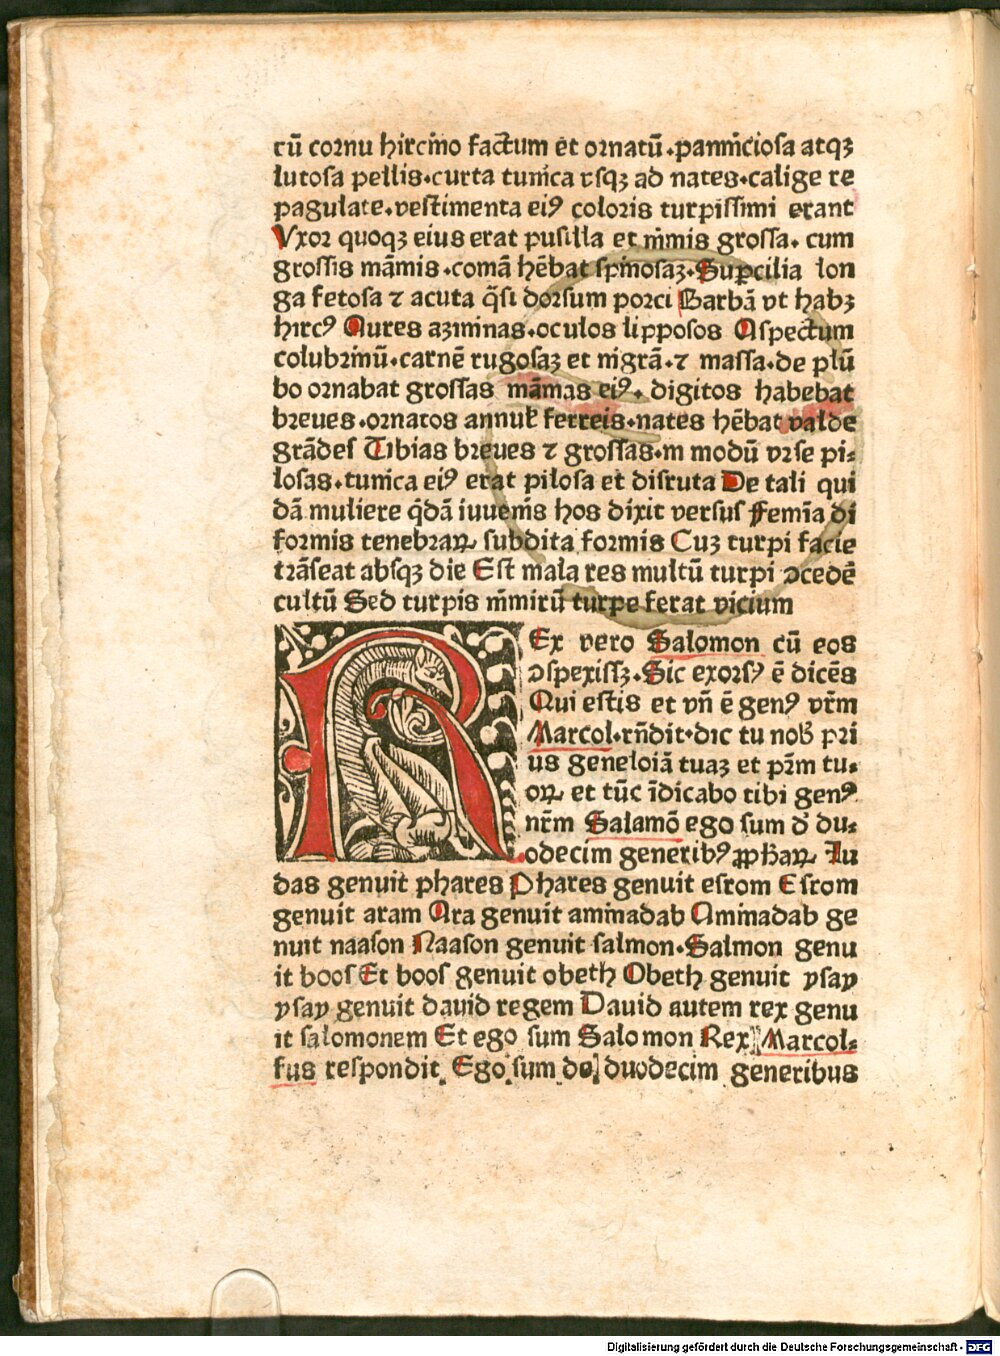 cū cornu hircino factum et ornatū.panniciosa atqꝫ
lutosa pellis.curta tunica vsqꝫ ad nates.calige re
pagulate.vestimenta eiꝰ coloris turpissimi erant
Vxor quoqꝫ eius erat pusilla et nimis grossa. cum
grossis māmis.comā hēbat spinosaꝫ.Suꝑcilia lon
ga setosa ⁊ acuta q̄si dorsum porci Barbā vt habꝫ
hircꝰ Aures aziminas.oculos lipposos Aspectum
colubrinū.carnē rugosaꝫ et nigrā.⁊ massa.de plū
bo ornabat grossas māmas eiꝰ. digitos habebat
breues.ornatos annul' ferreis.nates hēbat valde
grādes Tibias breues ⁊ grossas.in modū vrse pi⸗
losas.tunica eiꝰ erat pilosa et disruta De tali qui
dā muliere q̄dā iuuenis hos dixit versus ffemīa di
formis tenebraꝝ subdita formis Cuꝫ turpi facie
trāseat absqꝫ die Est mala res multū turpi ↄcedē
cultū Sed turpis nimirū turpe ferat vicium
REx vero Salomon cū eos
ↄspexissꝫ.Sic exorsꝰ ē dicēs
Qui estis et vn̄ ē genꝰ vr̄m
Marcol.rn̄dit.dic tu nob' pri
us geneloiā tuaꝫ et pr̄m tu⸗
oꝝ et tūc īdicabo tibi genꝰ
nr̄m Salamō ego sum d' du⸗
odecim generibꝰ ꝓphaꝝ Iu
das genuit phares Phares genuit esrom Esrom
genuit aram Ara genuit aminadab Aminadab ge
nuit naason Naason genuit salmon.Salmon genu
it boos Et boos genuit obeth Obeth genuit ysay
ysay genuit dauid regem Dauid autem rex genu
it salomonem Et ego sum Salomon Rex Marcol⸗
fus respondit. Ego sum de duodecim generibus
Digitalisierung gefördert durch die Deutsche Forschungsgemeinschaft - DFG